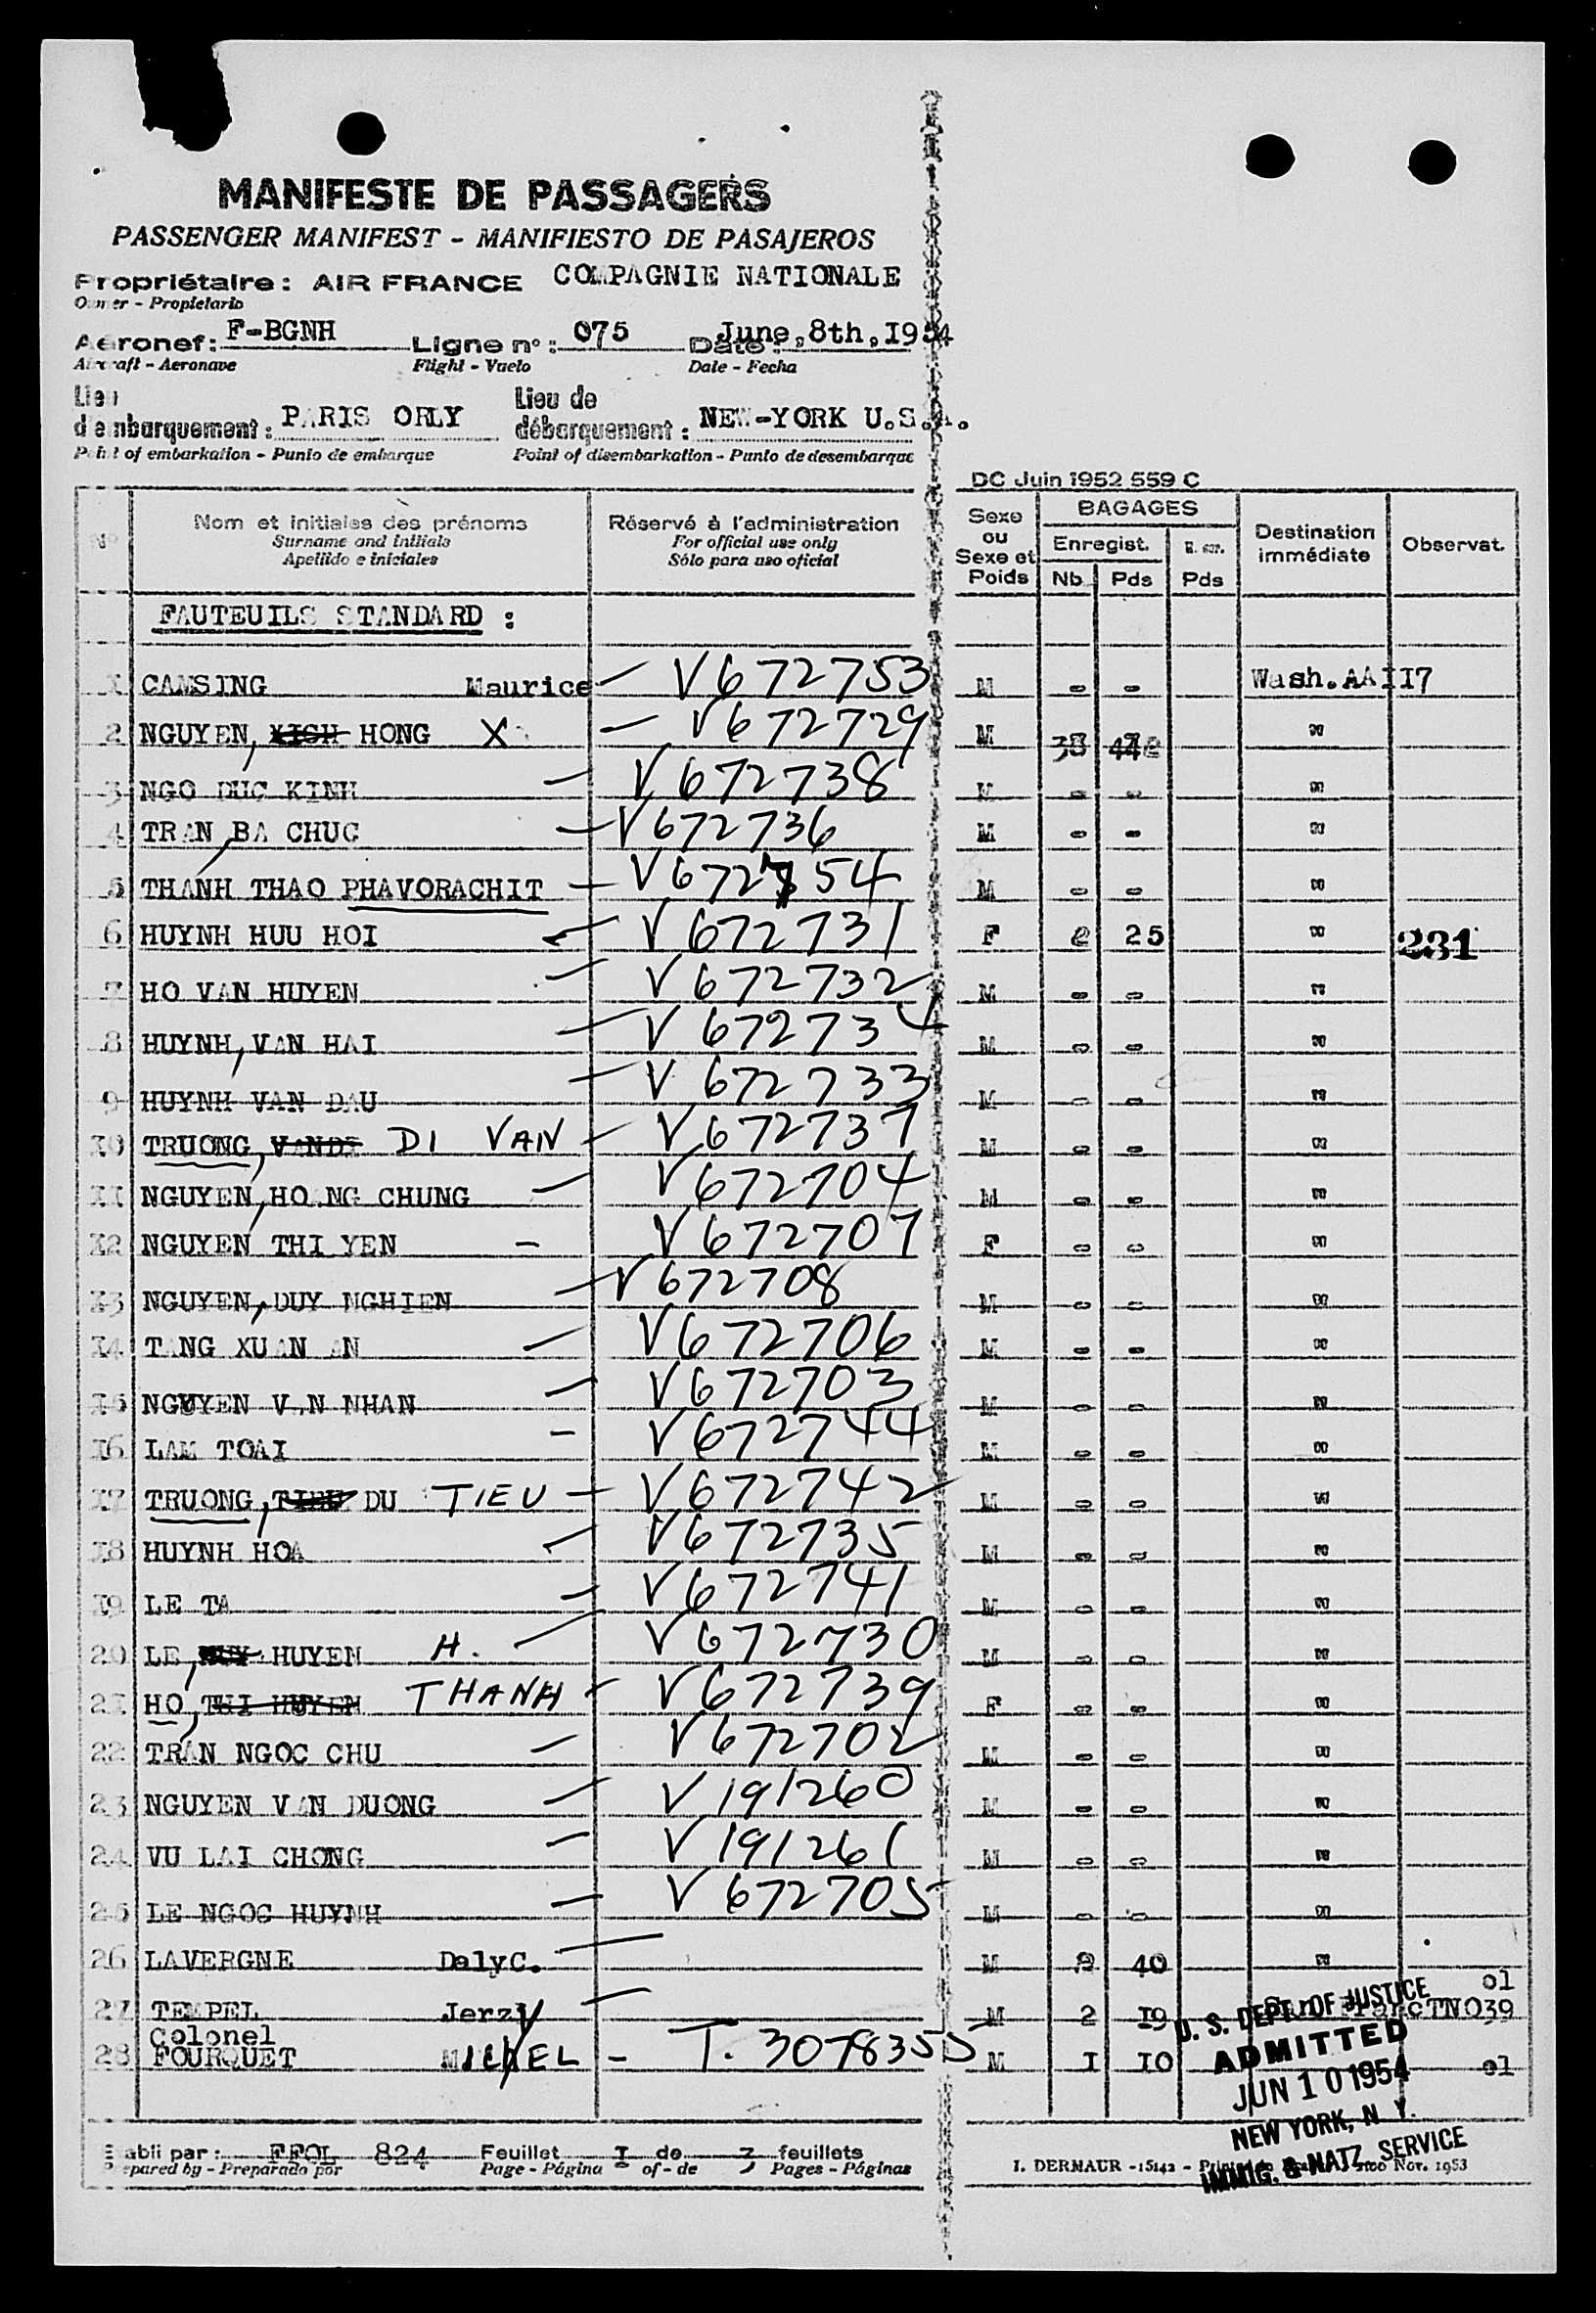 MANIFESTE DE PASSAGERS
PASSENGER MANIFEST - MANIFIESTO DE PASAJEROS
Propriétaire : AIR FRANCE COMPAGNIE NATIONALE
Owner - Propietario
Aéronef : F-BGNH Ligne n° : 075 Date : June,8th,1954
Aircraft - Aeronave Flight - Vuelo Date - Fecha
Lieu d'embarquement : PARIS ORLY Lieu de débarquement : NEW-YORK U.S.A.
Point of embarkation - Punto de embarque Point of disembarkation - Punto de desembarque
DC Juin 1952 559 C
N° Nom et initiales des prénoms Réservé à l'administration Sexe ou Sexe et Poids BAGAGES Enregist. Nb Pds Pds Destination immédiate Observat.
Surname and initials For official use only
Apellido e iniciales Sólo para uso oficial
FAUTEUILS STANDARD :
1 CAMSING Maurice - V672753 M - - Wash.AAII7
2 NGUYEN, HONG X - V672729 M "
3 NGO DUC KINH - V672738 M - - "
4 TRAN, BA CHUC - V672736 M - - "
5 THANH THAO PHAVORACHIT - V672754 M - - "
6 HUYNH HUU HOI - V672731 F 25 " 231
7 HO VAN HUYEN - V672732 M - - "
8 HUYNH, VAN HAI - V672734 M - - "
9 HUYNH VAN DAU - V672733 M - - "
10 TRUONG, DI VAN - V672737 M - - "
11 NGUYEN, HOANG CHUNG - V672704 M - - "
12 NGUYEN THI YEN - V672707 F - - "
13 NGUYEN, DUY NGHIEN - V672708 M - - "
14 TANG XUAN AN - V672706 M - - "
15 NGUYEN VAN NHAN - V672703 M - - "
16 LAM TOAI - V672744 M - - "
17 TRUONG, TIEU DU TIEU - V672742 M - - "
18 HUYNH HOA - V672735 M - - "
19 LE TA - V672741 M - - "
20 LE, HUYEN H. - V672730 M - - "
21 HO, THI HUYEN THANH - V672739 F - - "
22 TRAN NGOC CHU - V672702 M - - "
23 NGUYEN VAN DUONG - V191260 M - - "
24 VU LAI CHONG - V191261 M - - "
25 LE NGOC HUYNH - V672705 M - - "
26 LAVERGNE Daly C. - M 2 40 "
27 TEMPEL Jerzy - M 2 I9 TNO39 ol
Colonel
28 FOURQUET MICHEL - T. 3078355 M I IO ol
U. S. DEPT. OF JUSTICE
ADMITTED
JUN 10 1954
NEW YORK, N. Y.
IMMIG. & NATZ. SERVICE
Etabli par : FFOL 824 Feuillet I de 3 feuillets
Prepared by - Preparado por Page - Página of - de Pages - Páginas
I. DERMAUR - 15142 - Nov. 1953